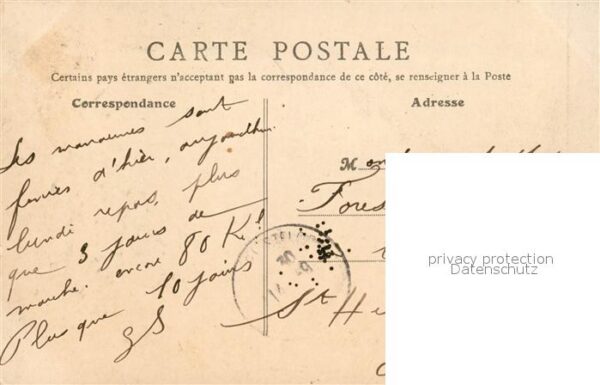 CARTE POSTALE
Certains pays étrangers n'acceptant pas la correspondance de ce côté, se renseigner à la Poste
Correspondance
Adresse
Les manœuvres sont
d'hier, aujourd'hui
lundi repos, plus
que 3 jours de
marche. encore 80 K!
Plus que 10 jours
M
Fores
St He
privacy protection
Datenschutz